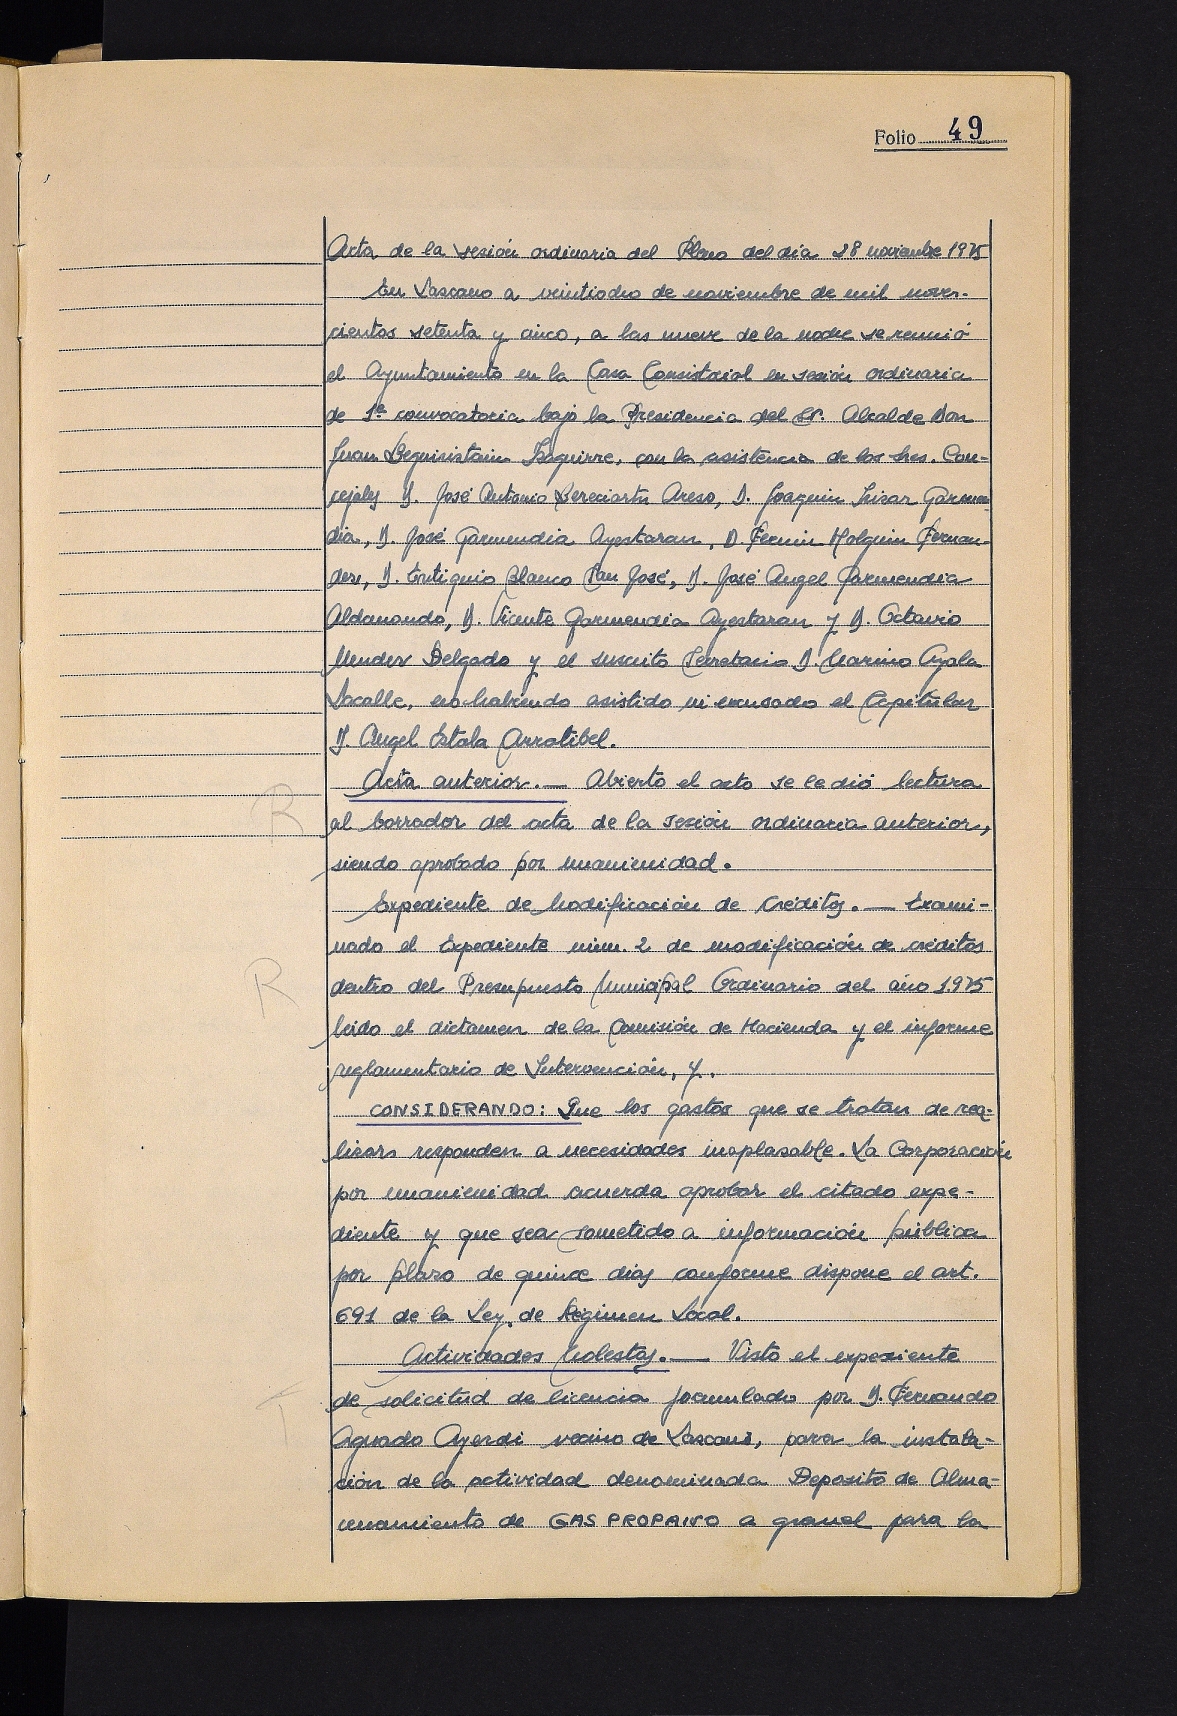 Folio 49
Acta de la sesión ordinaria del Pleno del día 28 noviembre 1975
En Lazcano a veintiocho de noviembre de mil nove-
cientos setenta y cinco, a las nueve de la noche se reunió
el Ayuntamiento en la Casa Consistorial en sesión ordinaria
de 1ª convocatoria bajo la Presidencia del Sr. Alcalde Don
Juan Beguiristain Izaguirre, con la asistencia de los Sres. Con-
cejales D. José Antonio Bereciartu Areso, D. Joaquin Garmen
dia, D. José Garmendia Ayestaran, D. Fermin Holguin Fernan-
dez, D. Eutiquio Blanco San José, D. José Angel Garmendia
Aldanondo, D. Vicente Garmendia Ayestaran y D. Octavio
Mendez Delgado y el suscrito Secretario D. Marino Ayala
Lacalle, no habiendo asistido ni excusado el Capitular
D. Angel Estala Arratibel.
Acta anterior.— Abierto el acto se le dió lectura
R al borrador del acta de la sesión ordinaria anterior,
siendo aprobado por unanimidad.
Expediente de Modificación de Créditos.— Exami-
nado el Expediente núm. 2 de modificación de créditos
R dentro del Presupuesto Municipal Ordinario del año 1.975
leido el dictamen de la Comisión de Hacienda y el informe
reglamentario de Intervención, y.
CONSIDERANDO: Que los gastos que se tratan de rea-
lizars responden a necesidades inaplazable. La Corporación
por unanimidad acuerda aprobar el citado expe-
diente y que sea sometido a información pública
por plazo de quince días conforme dispone el art.
691 de la Ley de Régimen Local.
Actividades Molestas.— Visto el expediente
T de solicitud de licencia formulado por D. Fernando
Aguado Ayerdi vecino de Lazcano, para la instala-
ción de la actividad denominada Deposito de Alma-
cenamiento de GAS PROPANO a granel para la